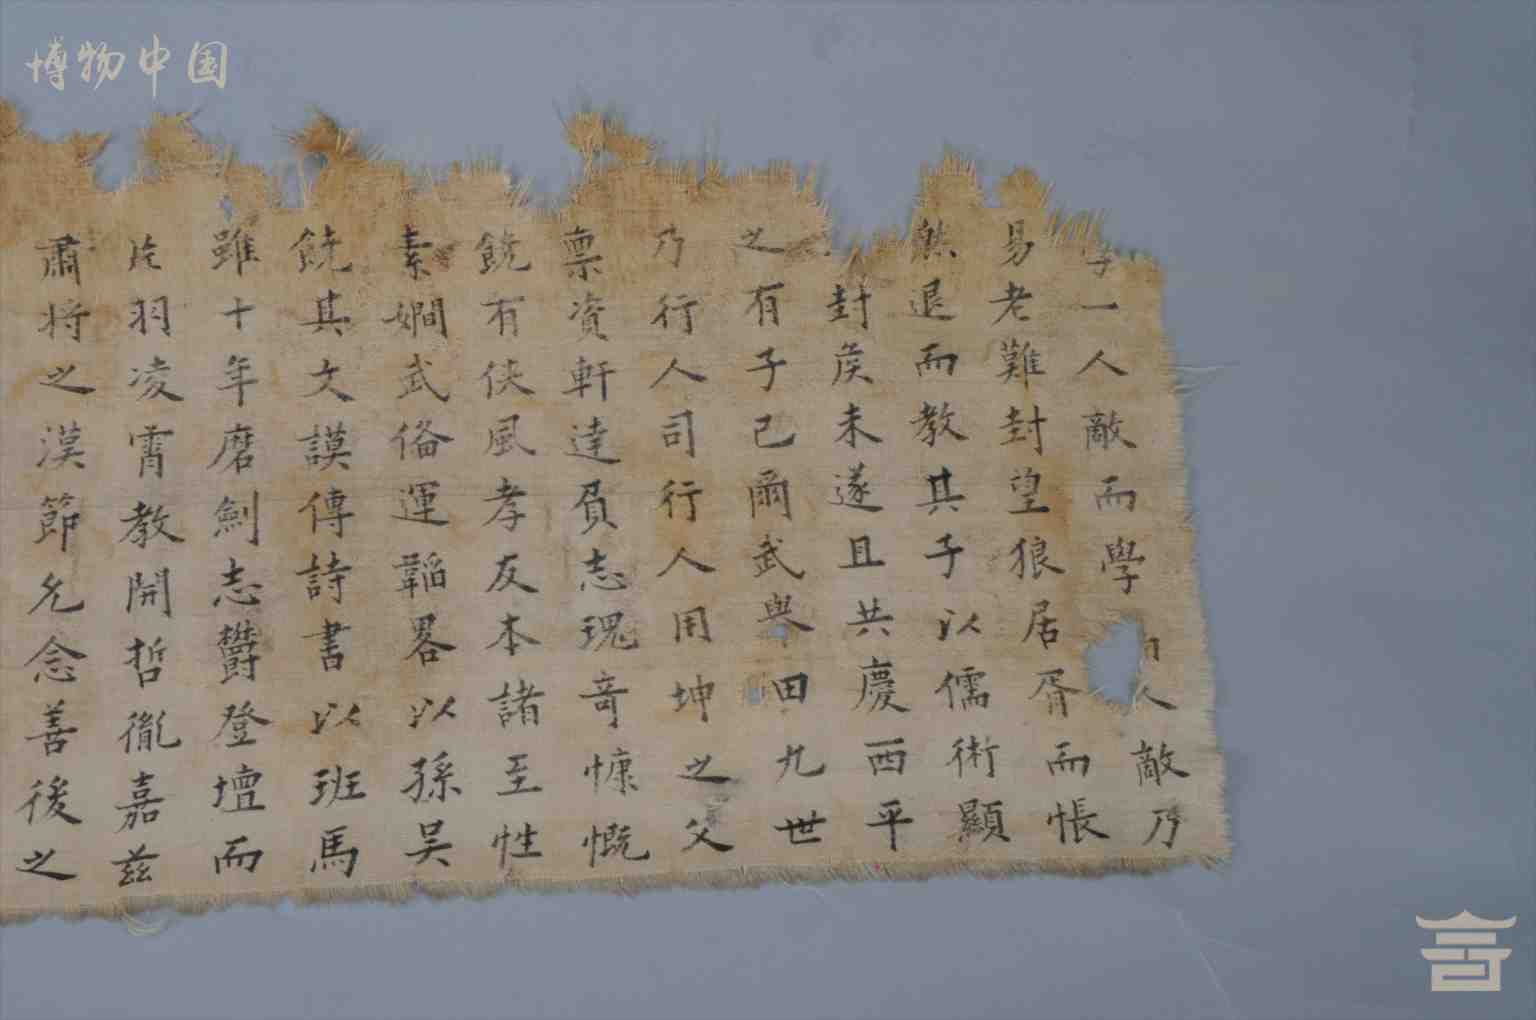 博物中国
學一人敵而學人敵乃
易老難封望狼居胥而悵
然退而教其子以儒術顯
封侯未遂且共慶西平
之有子已爾武與田九世
乃行人司行人用坤之父
禀資軒達負志瑰奇慷慨
饒有俠風孝友本諸至性
素嫻武俻運韜畧以孫吴
饒其文謨傳詩書以班馬
雖十年磨劍志欝登壇而
片羽凌霄教開哲胤嘉兹
肅将之漢節允念善後之